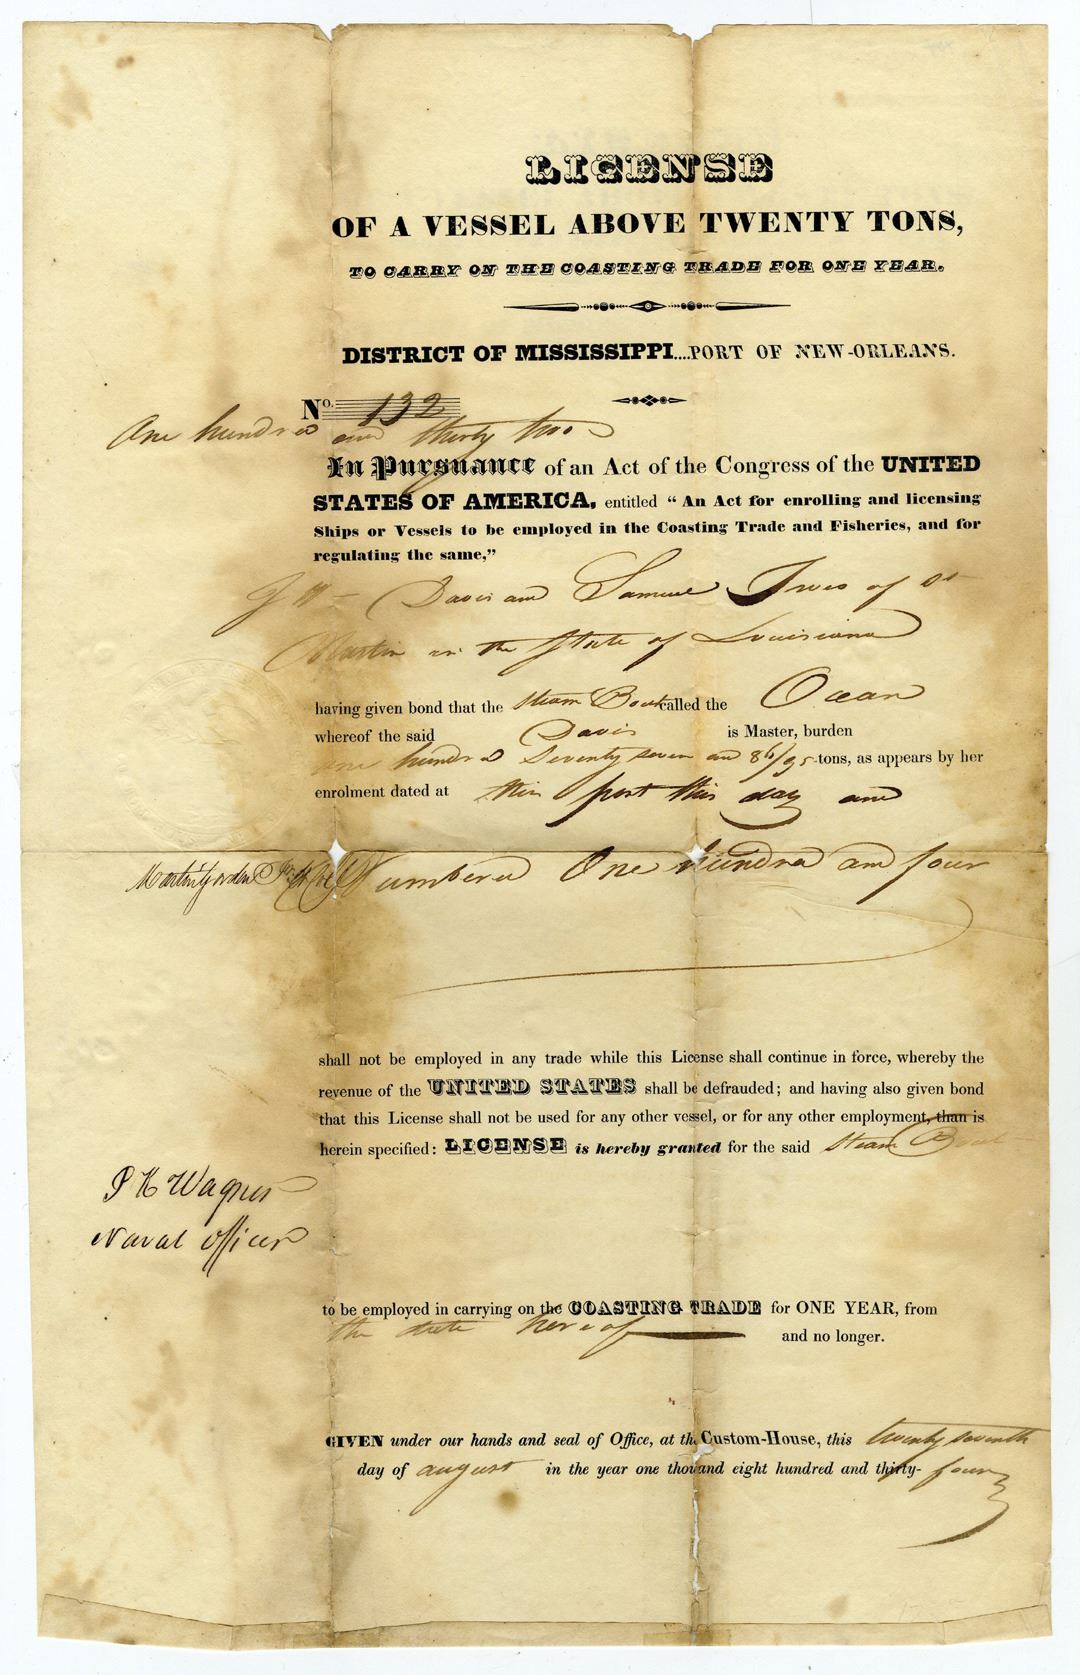 LICENSE
OF A VESSEL ABOVE TWENTY TONS,
TO CARRY ON THE COASTING TRADE FOR ONE YEAR.
DISTRICT OF MISSISSIPPI....PORT OF NEW-ORLEANS.
No. 132
One hundred and thirty two
In Pursuance of an Act of the Congress of the UNITED
STATES OF AMERICA, entitled "An Act for enrolling and licensing
Ships or Vessels to be employed in the Coasting Trade and Fisheries, and for
regulating the same,"
J W Davis and Samuel Ives of St
Martin in the State of Louisiana
having given bond that the Steam Boat called the Ocean
whereof the said Davis is Master, burden
one hundred Seventy seven and 86/95 tons, as appears by her
enrolment dated at this port this day and
Martin Gordon Jr
Numbered One hundred and four
shall not be employed in any trade while this License shall continue in force, whereby the
revenue of the UNITED STATES shall be defrauded; and having also given bond
that this License shall not be used for any other vessel, or for any other employment, than is
herein specified: LICENSE is hereby granted for the said Steam Boat
P K Wagner
Naval Officer
to be employed in carrying on the COASTING TRADE for ONE YEAR, from
the date hereof and no longer.
GIVEN under our hands and seal of Office, at the Custom-House, this twenty seventh
day of august in the year one thousand eight hundred and thirty-four